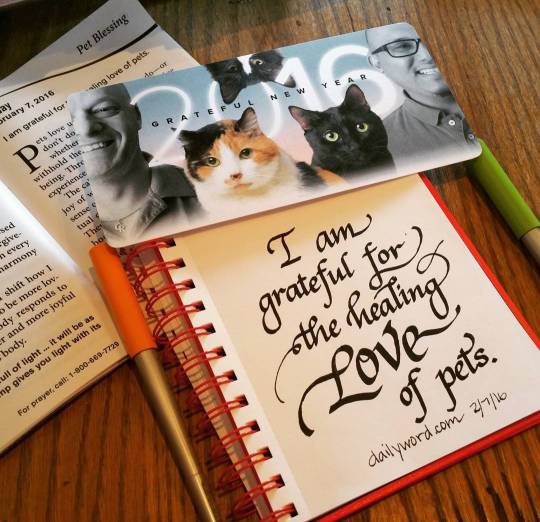 Pet Blessing
ay
bruary 7, 2016
I am grateful for ling love of pets.
Pets love u do—or
don't do.
whether
withhold the
being. Thr
experience
The ca
joy of w
sense th
tual
Bat
sed
rgive-
n every
armony
shift how I
o be more lov-
ody responds to
r and more joyful
body.
full of light ... it will be as
mp gives you light with its
For prayer, call: 1-800-669-7729
2016
GRATEFUL NEW YEAR
I am
grateful for
the healing
LOVE
of pets.
dailyword.com 2/7/16